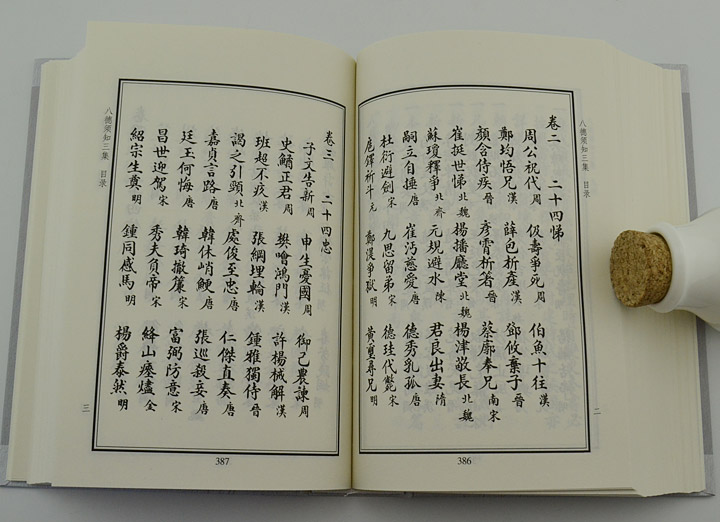 八德须知三集 目录
卷二 二十四悌
周公祝代周 伋壽爭死周 伯魚十往漢
鄭均悟兄漢 薛包析產漢 鄧攸棄子晉
顏含侍疾晉 彥霄析箸晉 蔡廓奉兄南宋
崔挺世悌北魏 楊播廳堂北魏 楊津敬長北魏
蘇瓊釋爭北齊 元規避水陳 君良出妻隋
嗣立自捶唐 崔沔慈愛唐 德秀乳孤唐
杜衍避劍宋 九思留弟宋 德珪代斃宋
扈鐸祈斗元 鄭湜爭獄明 黃璽尋兄明
二
386
卷三 二十四忠
子文告新周 申生憂國周 御己農諫周
史鰌正君周 樊噲鴻門漢 許楊械解漢
班超不疚漢 張綱埋輪漢 鍾雅獨侍晉
謁之引頸北齊 處俊至忠唐 仁傑直奏唐
嘉貞言路唐 韓休峭鯁唐 張巡殺妾唐
廷玉何悔唐 韓琦撤簾宋 富弼防意宋
昌世迎駕宋 秀夫負帝宋 絳山瘞燼金
紹宗生奠明 鍾同感馬明 楊爵泰然明
八德须知三集 目录
三
387